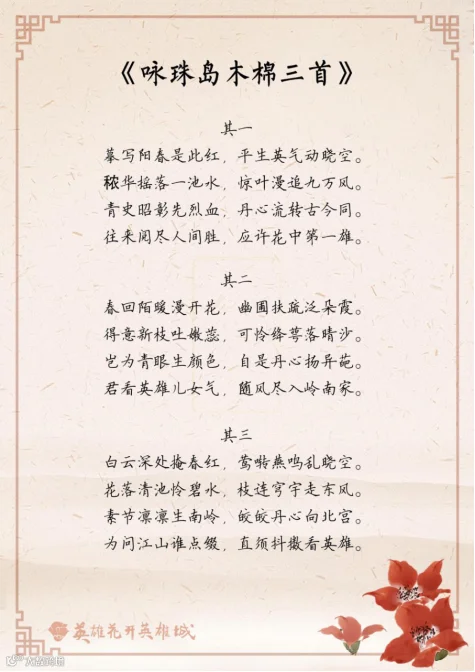 《咏珠岛木棉三首》
其一
摹写阳春是此红，平生英气动晓空。
秾华摇落一池水，惊叶漫追九万风。
青史昭彰先烈血，丹心流转古今同。
往来阅尽人间胜，应许花中第一雄。
其二
春回陌暖漫开花，幽圃扶疏泛朵霞。
得意新枝吐嫩蕊，可怜绛萼落晴沙。
岂为青眼生颜色，自是丹心扬异葩。
君看英雄儿女气，随风尽入岭南家。
其三
白云深处掩春红，莺啭燕鸣乱晓空。
花落清池怜碧水，枝连穹宇走东风。
素节凛凛生南岭，皎皎丹心向北宫。
为问江山谁点缀，直须抖擞看英雄。
英雄花开英雄城